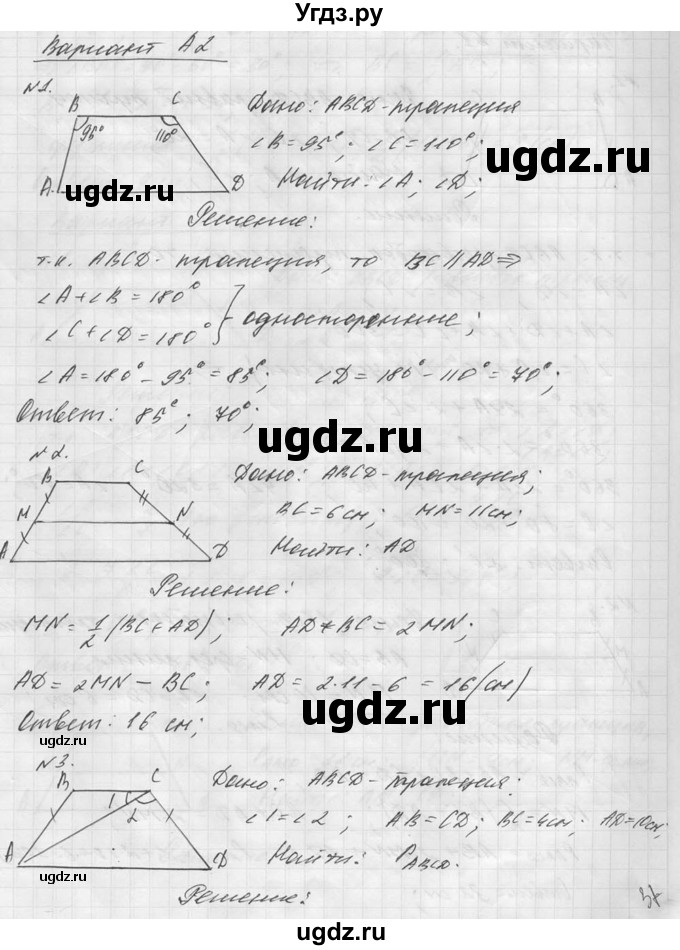 Угдз.ру
Вариант А2
№1.
B C
95° 110°
A D
Дано: ABCD - трапеция
∠B = 95°; ∠C = 110°;
Найти: ∠A; ∠D;
Решение:
т.к. ABCD - трапеция, то BC ∥ AD ⇒
∠A + ∠B = 180°
∠C + ∠D = 180° } односторонние;
∠A = 180° - 95° = 85°; ∠D = 180° - 110° = 70°;
Ответ: 85°; 70°;
№2.
B C
M N
A D
Дано: ABCD - трапеция;
BC = 6 см; MN = 11 см;
Найти: AD
Решение:
MN = 1/2 (BC + AD); AD + BC = 2MN;
AD = 2MN - BC; AD = 2·11 - 6 = 16 (см)
Ответ: 16 см;
№3.
B C
1 2
A D
Дано: ABCD - трапеция.
∠1 = ∠2; AB = CD; BC = 4 см; AD = 10 см;
Найти: P ABCD.
Решение:
37
ugdz.ru
ugdz.ru
ugdz.ru
ugdz.ru
ugdz.ru
ugdz.ru
ugdz.ru
ugdz.ru
Угдз.ру